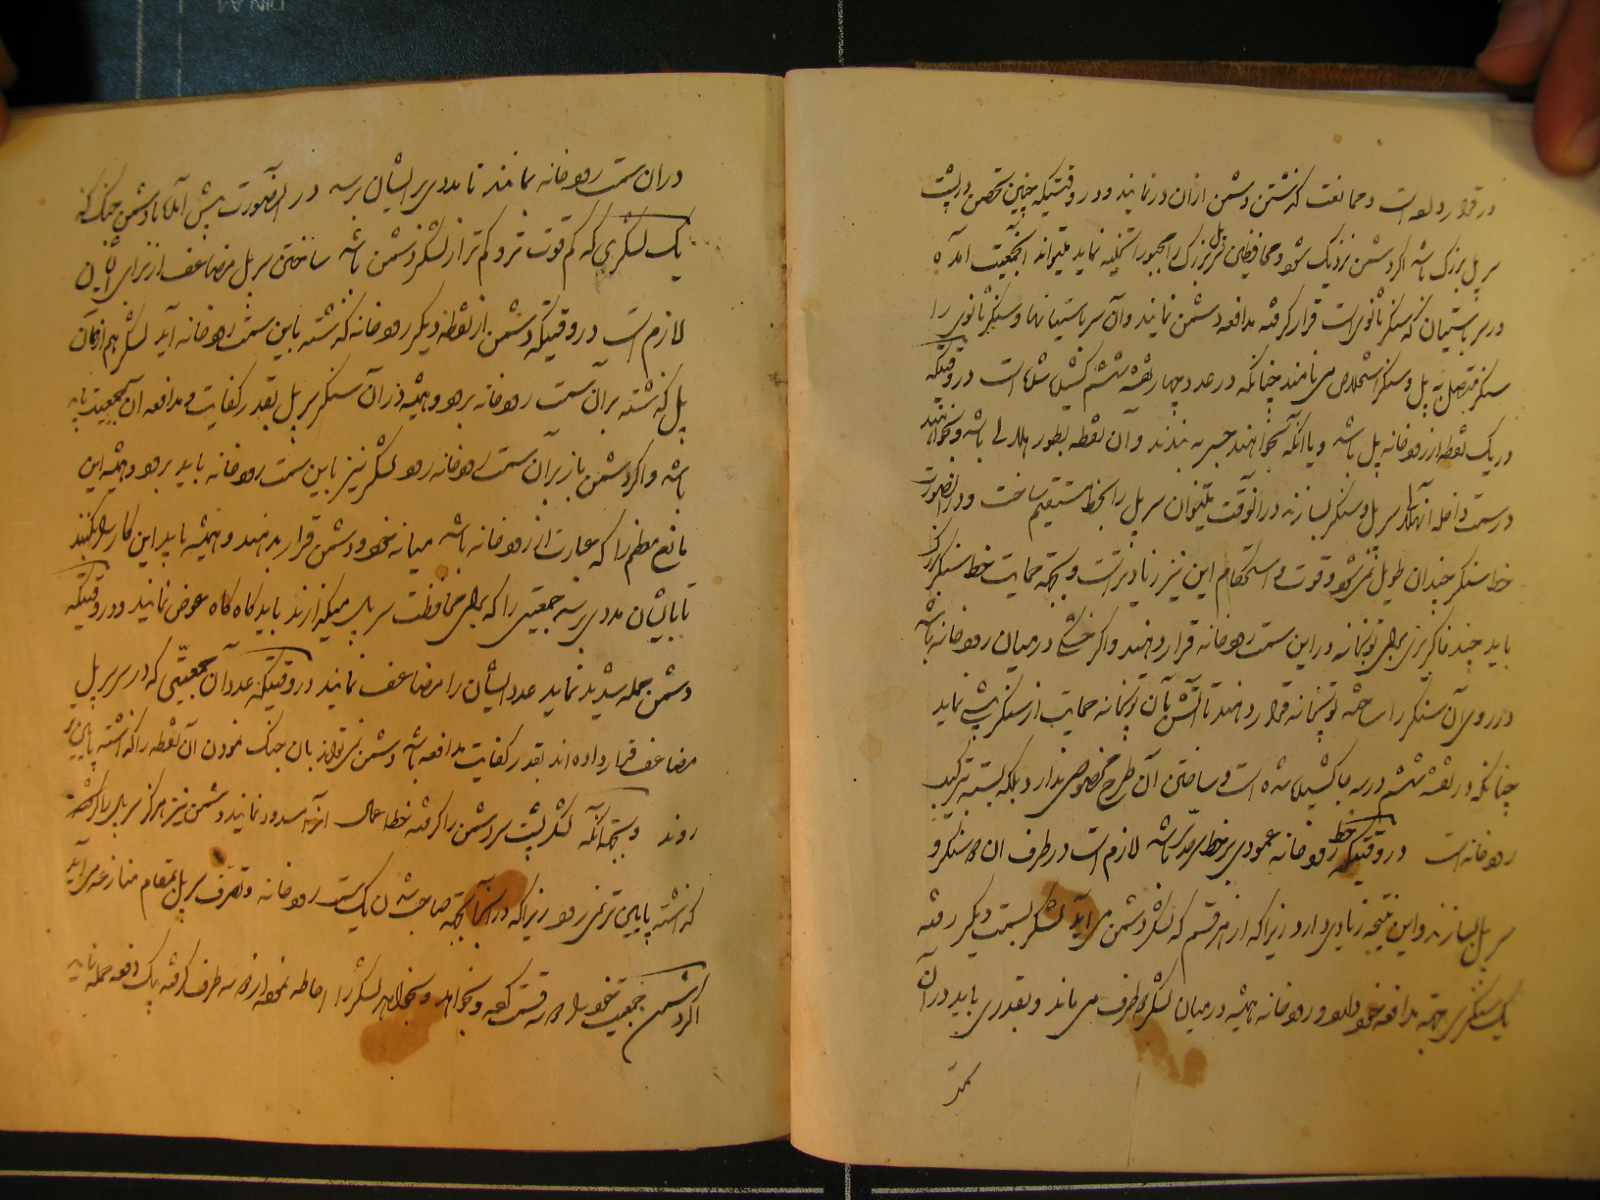 در قرار دلعه است و ممانعت گذشتن دشمن از آن در نمایند و در وقتیکه چنین تحصن در پشت
سر پل بزرگ باشد اگر دشمن نزدیک شود و محافظین سر پل بزرگ را مجبورا تخلیه نماید میتواند آنجمعیت آمده
در سر باستیان که سنکر ثانوی است قرار گرفته مدافعه دشمن نمایند و آن سر باستیانها و سنکر ثانوی را
سنکر متصل به پل و سنکر استخلاص می نامند چنانکه در عدد چهار نقشه ششم کشیده شده است در وقتیکه
در یک نقطه از رودخانه پل باشد و یا آنکه بخواهند جسر به بندند و آن نقطه بطور هلالی باشد و بخواهند
در سمت داخله آنهلال سر پل و سنکر بسازند در آنوقت میتوان سر پل را بخط مستقیم ساخت و در اینصورت
خط سنکر چندان طویل نمی شود و قوت و استحکام این نیز زیادتر است و بجهته حمایت خط سنکر بزرگ
باید چند خاکریزی برای توپخانه در این سمت رودخانه قرار دهند و اگر خشکی در میان رودخانه باشد
در روی آن سنکر را ساخته توپخانه قرار دهند تا آتش آن توپخانه حمایت از سنکر پیش نماید
چنانکه در نقشه ششم در سه با کشیده شده است و ساختن آن طرح مخصوصی ندارد بلکه بسته بترکیب
رودخانه است در وقتیکه خط رودخانه عمودی بر خط سرحد باشد لازم است در طرف آن دو سنکر و
سر پل بسازند و این نتیجه زیادی دارد زیرا که از هر قسم که لشکر دشمن می آید لشکر بسمت دیگر رفته
یک سنکری بجهته مدافعه خود دارد و رودخانه همیشه در میان لشکر دو طرف می ماند و بقدری باید در آن
در آن سمت رودخانه نمانند تا مددی بر ایشان برسد در اینصورت پیش آمد با دشمن جنک کند
یک لشکری که کم قوت تر و کم تر از لشکر دشمن باشد ساختن سر پل مضاعف از برای ایشان
لازم است در وقتیکه دشمن از نقطه دیگر رودخانه گذشته باین سمت رودخانه آید لشکر هم از آن
پل گذشته بر آن سمت رودخانه برود و همیشه در آن سنکر سر پل بقدر کفایت و مدافعه آن جمعیت باید
باشد و اگر دشمن باز بر آن سمت رودخانه رود لشکر نیز باین سمت رودخانه باید برود و همیشه این
مانع معظم را که عبارت از رودخانه باشد میانه خود و دشمن قرار بدهند و همیشه باید این کار را بکنند
تا بایشان مددی برسد جمعیتی را که برای محافظت سر پل میگذارند باید گاه گاه عوض نمایند و در وقتیکه
دشمن حمله شدید نماید عدد ایشان را مضاعف نمایند در وقتیکه عدد آن جمعیتی که در سر پل
مضاعف قرار داده اند بقدر کفایت مدافعه باشد دشمن نمی تواند بان جنک نمودن آن نقطه را گذاشته پایین تر
روند و بجهته آنکه لشکر پشت سر دشمن را گرفته خط اعمال آنرا مسدود نمایند دشمن نیز هرگز سر پل را
گذاشته پایین تر نمی رود زیرا که در آنجا بجهته صاحب شدن یک سمت رودخانه و تصرف سر پل بمقام منازعه می آید
اگر دشمن جمعیت خود را دو سه قسمت کرده و بخواهد لشکر را احاطه نموده از دو سه طرف گرفته یک دفعه حمله نماید